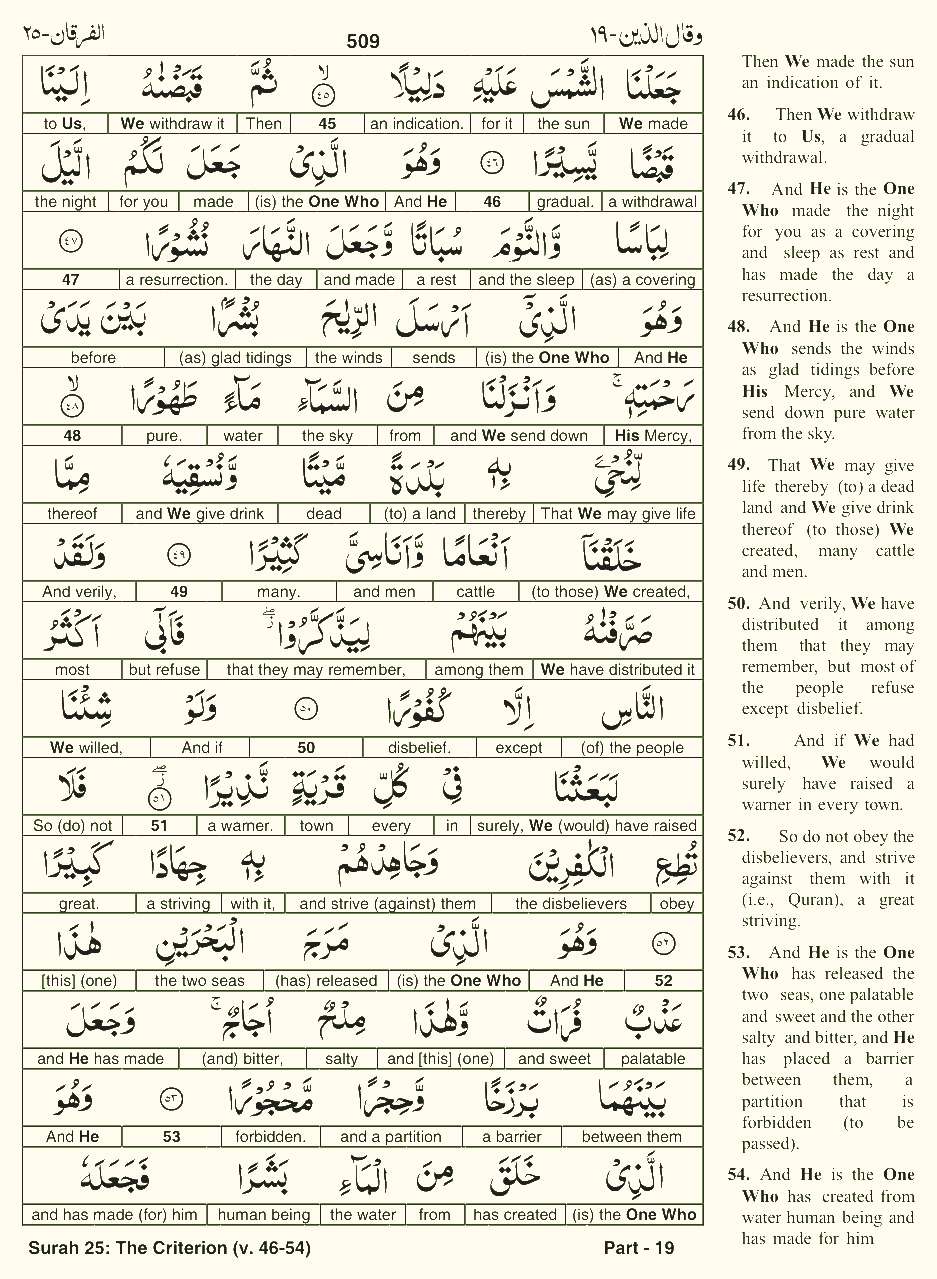 الفرقان-٢٥ 509 وقال الذين-١٩
جَعَلْنَا الشَّمْسَ عَلَيْهِ دَلِيْلًا ﴿٤٥﴾ۙ ثُمَّ قَبَضْنٰهُ اِلَيْنَا
to Us, We withdraw it Then 45 an indication. for it the sun We made
قَبْضًا يَّسِيْرًا ﴿٤٦﴾ وَهُوَ الَّذِيْ جَعَلَ لَكُمُ الَّيْلَ
the night for you made (is) the One Who And He 46 gradual. a withdrawal
لِبَاسًا وَّالنَّوْمَ سُبَاتًا وَّجَعَلَ النَّهَارَ نُشُوْرًا ﴿٤٧﴾
47 a resurrection. the day and made a rest and the sleep (as) a covering
وَهُوَ الَّذِيْٓ اَرْسَلَ الرِّيٰحَ بُشْرًۢا بَيْنَ يَدَيْ
before (as) glad tidings the winds sends (is) the One Who And He
رَحْمَتِهٖ ۚ وَاَنْزَلْنَا مِنَ السَّمَآءِ مَآءً طَهُوْرًا ﴿٤٨﴾ۙ
48 pure. water the sky from and We send down His Mercy,
لِّنُحْيِۦَ بِهٖ بَلْدَةً مَّيْتًا وَّنُسْقِيَهٗ مِمَّا
thereof and We give drink dead (to) a land thereby That We may give life
خَلَقْنَآ اَنْعَامًا وَّاَنَاسِيَّ كَثِيْرًا ﴿٤٩﴾ وَلَقَدْ
And verily, 49 many. and men cattle (to those) We created,
صَرَّفْنٰهُ بَيْنَهُمْ لِيَذَّكَّرُوْا ۖ فَاَبٰٓى اَكْثَرُ
most but refuse that they may remember, among them We have distributed it
النَّاسِ اِلَّا كُفُوْرًا ﴿٥٠﴾ وَلَوْ شِئْنَا
We willed, And if 50 disbelief. except (of) the people
لَبَعَثْنَا فِيْ كُلِّ قَرْيَةٍ نَّذِيْرًا ﴿٥١﴾ۖ فَلَا
So (do) not 51 a warner. town every in surely, We (would) have raised
تُطِعِ الْكٰفِرِيْنَ وَجَاهِدْهُمْ بِهٖ جِهَادًا كَبِيْرًا
great. a striving with it, and strive (against) them the disbelievers obey
﴿٥٢﴾ وَهُوَ الَّذِيْ مَرَجَ الْبَحْرَيْنِ هٰذَا
[this] (one) the two seas (has) released (is) the One Who And He 52
عَذْبٌ فُرَاتٌ وَّهٰذَا مِلْحٌ اُجَاجٌ ۚ وَجَعَلَ
and He has made (and) bitter, salty and [this] (one) and sweet palatable
بَيْنَهُمَا بَرْزَخًا وَّحِجْرًا مَّحْجُوْرًا ﴿٥٣﴾ وَهُوَ
And He 53 forbidden. and a partition a barrier between them
الَّذِيْ خَلَقَ مِنَ الْمَآءِ بَشَرًا فَجَعَلَهٗ
and has made (for) him human being the water from has created (is) the One Who
Then We made the sun
an indication of it.
46. Then We withdraw
it to Us, a gradual
withdrawal.
47. And He is the One
Who made the night
for you as a covering
and sleep as rest and
has made the day a
resurrection.
48. And He is the One
Who sends the winds
as glad tidings before
His Mercy, and We
send down pure water
from the sky.
49. That We may give
life thereby (to) a dead
land and We give drink
thereof (to those) We
created, many cattle
and men.
50. And verily, We have
distributed it among
them that they may
remember, but most of
the people refuse
except disbelief.
51. And if We had
willed, We would
surely have raised a
warner in every town.
52. So do not obey the
disbelievers, and strive
against them with it
(i.e., Quran), a great
striving.
53. And He is the One
Who has released the
two seas, one palatable
and sweet and the other
salty and bitter, and He
has placed a barrier
between them, a
partition that is
forbidden (to be
passed).
54. And He is the One
Who has created from
water human being and
has made for him
Surah 25: The Criterion (v. 46-54) Part - 19